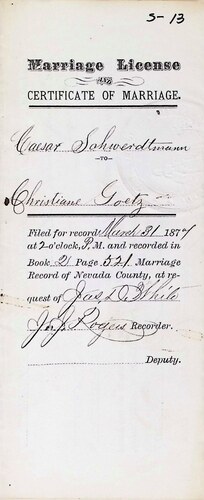 5-13
Marriage License
AND
CERTIFICATE OF MARRIAGE.
Caesar Schwerdtmann
—TO—
Christiane Goetz
Filed for record March 31 1874
at 2 o'clock, P.M. and recorded in
Book 2 Page 521 Marriage
Record of Nevada County, at re-
quest of Jas. D. White
Jno. J. Rogers Recorder.
Deputy.